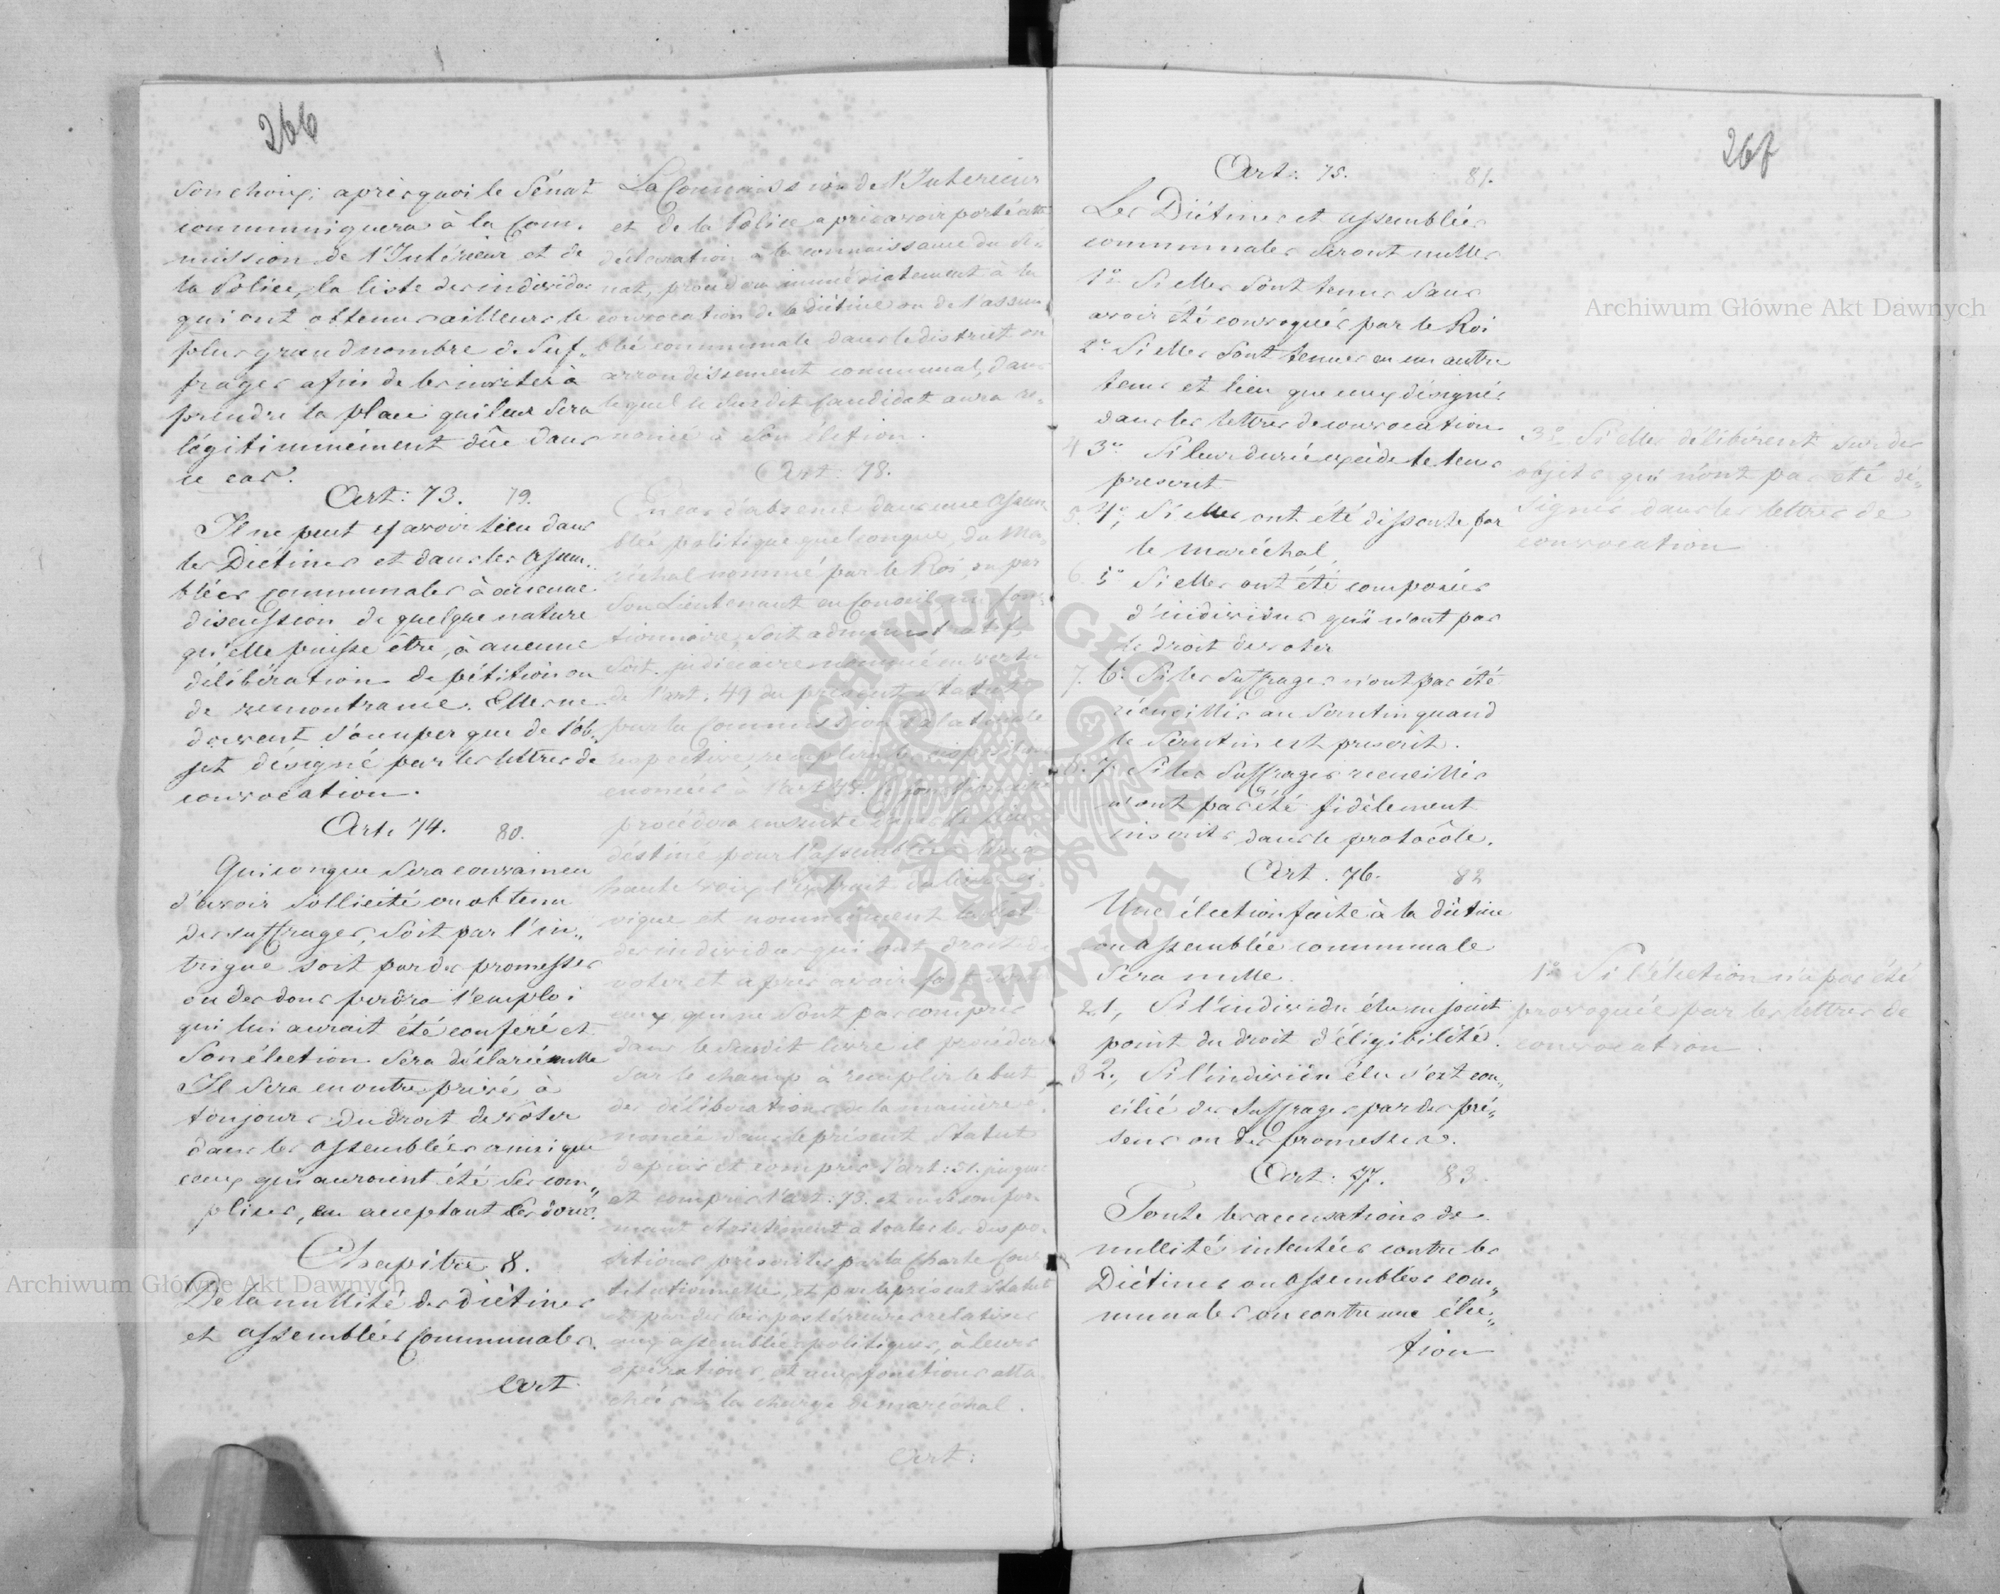 266
son choix; après quoi le Sénat
communiquera à la Com-
mission de l'Intérieur et de
la Police, la liste des individus
qui ont obtenu ailleurs le
plus grand nombre de Suf-
frages afin de les inviter à
prendre la place qui leur sera
légitimmément dûe dans
ce cas.
Art: 73. 79.
Il ne peut y avoir lieu dans
les Diétines et dans les assem-
blées communales à aucune
discussion de quelque nature
qu'elle puisse être, à aucune
délibération de pétition ou
de remontrance. Elles ne
doivent s'occuper que de l'ob-
jet désigné par les lettres de
convocation.
Art. 74. 80.
Quiconque sera convaincu
d'avoir sollicité ou obtenu
des suffrages, soit par l'in-
trigue soit par des promesses
ou des dons perdra l'emploi
qui lui aurait été conferé et
son élection sera déclarée nulle
Il sera en outre privé à
toujours du droit de vôter
dans les assemblées ainsi que
ceux qui auroient été ses com-
plices, en acceptant ses dons.
Chapitre 8.
De la nullité des diétines
et assemblées Communales.
Art.
La Commission de l'Interieur
et de la Police après avoir porté cette
déclaration à la connaissance du Sé-
nat, procédera immédiatement à la
convocation de la diétine ou de l'assem
blée communale dans le district ou
arrondissement communal, dans
lequel le susdit Candidat aura re-
noncé à son élection.
Art: 78.
En cas d'absence dans une assem
blée politique quelconque, du Ma-
réchal nommé par le Roi ou par
son Lieutenant en Conseil un fonc-
tionnaire, soit administratif,
soit judiciaire nommé en vertu
de l'art: 49 du présent Statut
par la Commission Palatinale
respective, remplira les
énoncés à l'art 45.
procédera ensuite dans le lieu
déstiné pour l'assemblée
haute voix l'extrait du livre ci-
vique et nommément la liste
des individus qui ont droit de
voter et après avoir fait
ceux qui ne sont pas compris
dans le susdit livre il procédera
sur le champ à remplir le but
des délibérations de la manière é-
noncée dans le présent Statut
depuis et compris l'art: 51. jusque
et compris l'art: 73. et en se confor
mant strictement à toutes les dispo-
sitions présentes par la Charte Cons
titutionnelle, et par le présent Statut
et par des lois postérieures relatives
aux assemblées politiques, à leurs
opérations, et aux fonctions atta
chées à la charge de maréchal.
Art:
267
Art: 75. 81.
Les Diétines et assemblées
communales seront nulles
1° Si elles sont tenues sans
avoir été convoquées par le Roi
2° Si elles sont tenues en un autre
tems et lieu que ceux désignés
dans les lettres de convocation
4 3° Si leur durée excède le tems
prescrit
5. 4°, Si elles ont été dissoute par
le maréchal
6. 5° Si elles ont été composées
d'individus qui n'ont pas
le droit de voter
7. 6° Si les suffrages n'ont pas été
récueillis au Scrutin quand
le Scrutin est prescrit.
8. 7° Si les suffrages recueillis
n'ont pas été fidèlement
inscrits dans le protocôle.
Art. 76. 82
Une élection faite à la diétine
ou assemblée communale
sera nulle.
2 1, Si l'individu élu ne jouit
point du droit d'éligibilité.
3 2., Si l'individu élu s'est con-
cilié des Suffrages par des pré-
sens ou des promesses.
Art: 77. 83.
Toute les accusations de
nullités intentées contre les
Diétines ou assemblées com-
munales ou contre une élec-
tion
3° Si elles délibérent sur des
objets qui n'ont pas été dé-
signés dans les lettres de
convocation
1° Si l'élection n'a pas été
provoquée par les lettres de
convocation.
Archiwum Główne Akt Dawnych
Archiwum Główne Akt Dawnych
ARCHIWUM GŁÓWNE AKT DAWNYCH